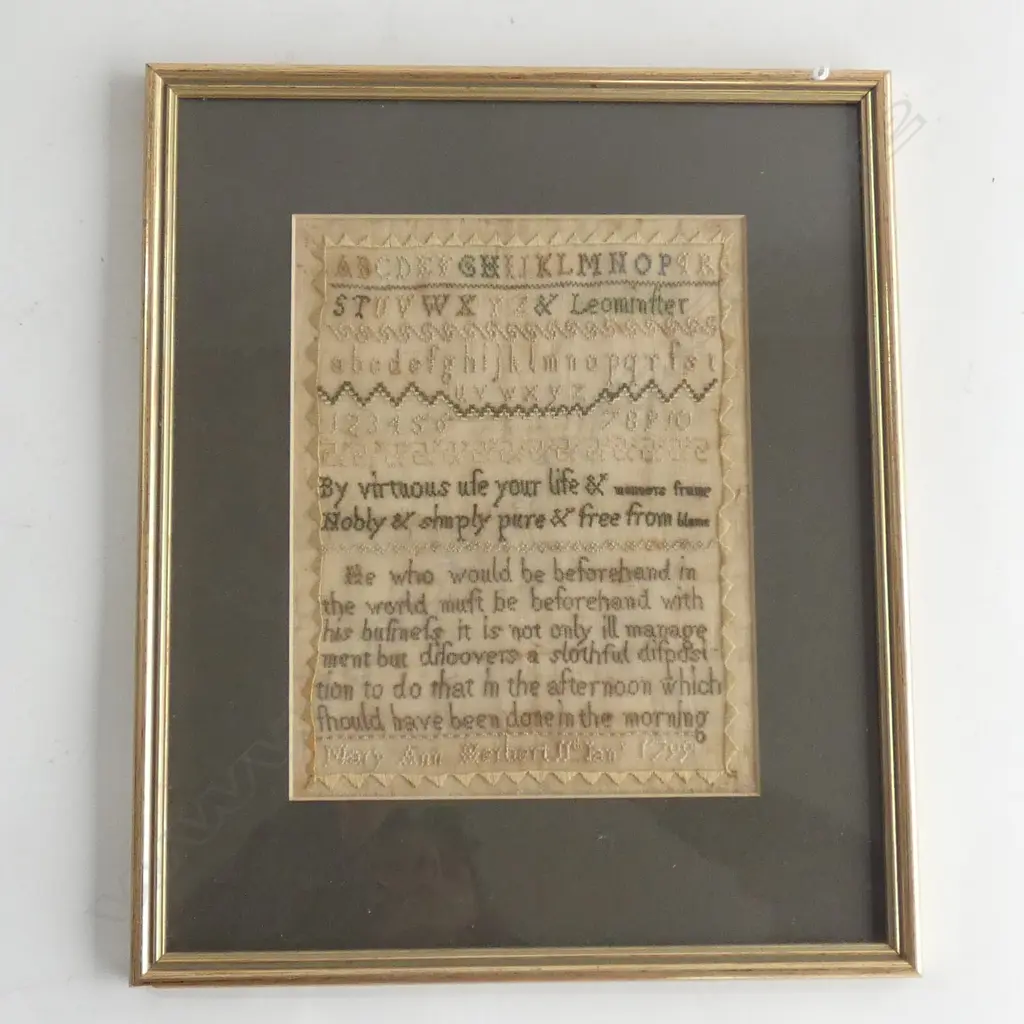 ABCDEFGHIJKLMNOPQR
STUVWXYZ& Leominſter
abcdefghijklmnopqrſst
uvwxyz
12345678910
By virtuous uſe your life & manners frame
Nobly & simply pure & free from blame
He who would be beforehand in
the world muſt be beforehand with
his buſineſs it is not only ill manage
ment but diſcovers a slothful diſpoſi-
tion to do that in the afternoon which
ſhould have been done in the morning
Mary Ann Herbert 11th Jany 1799